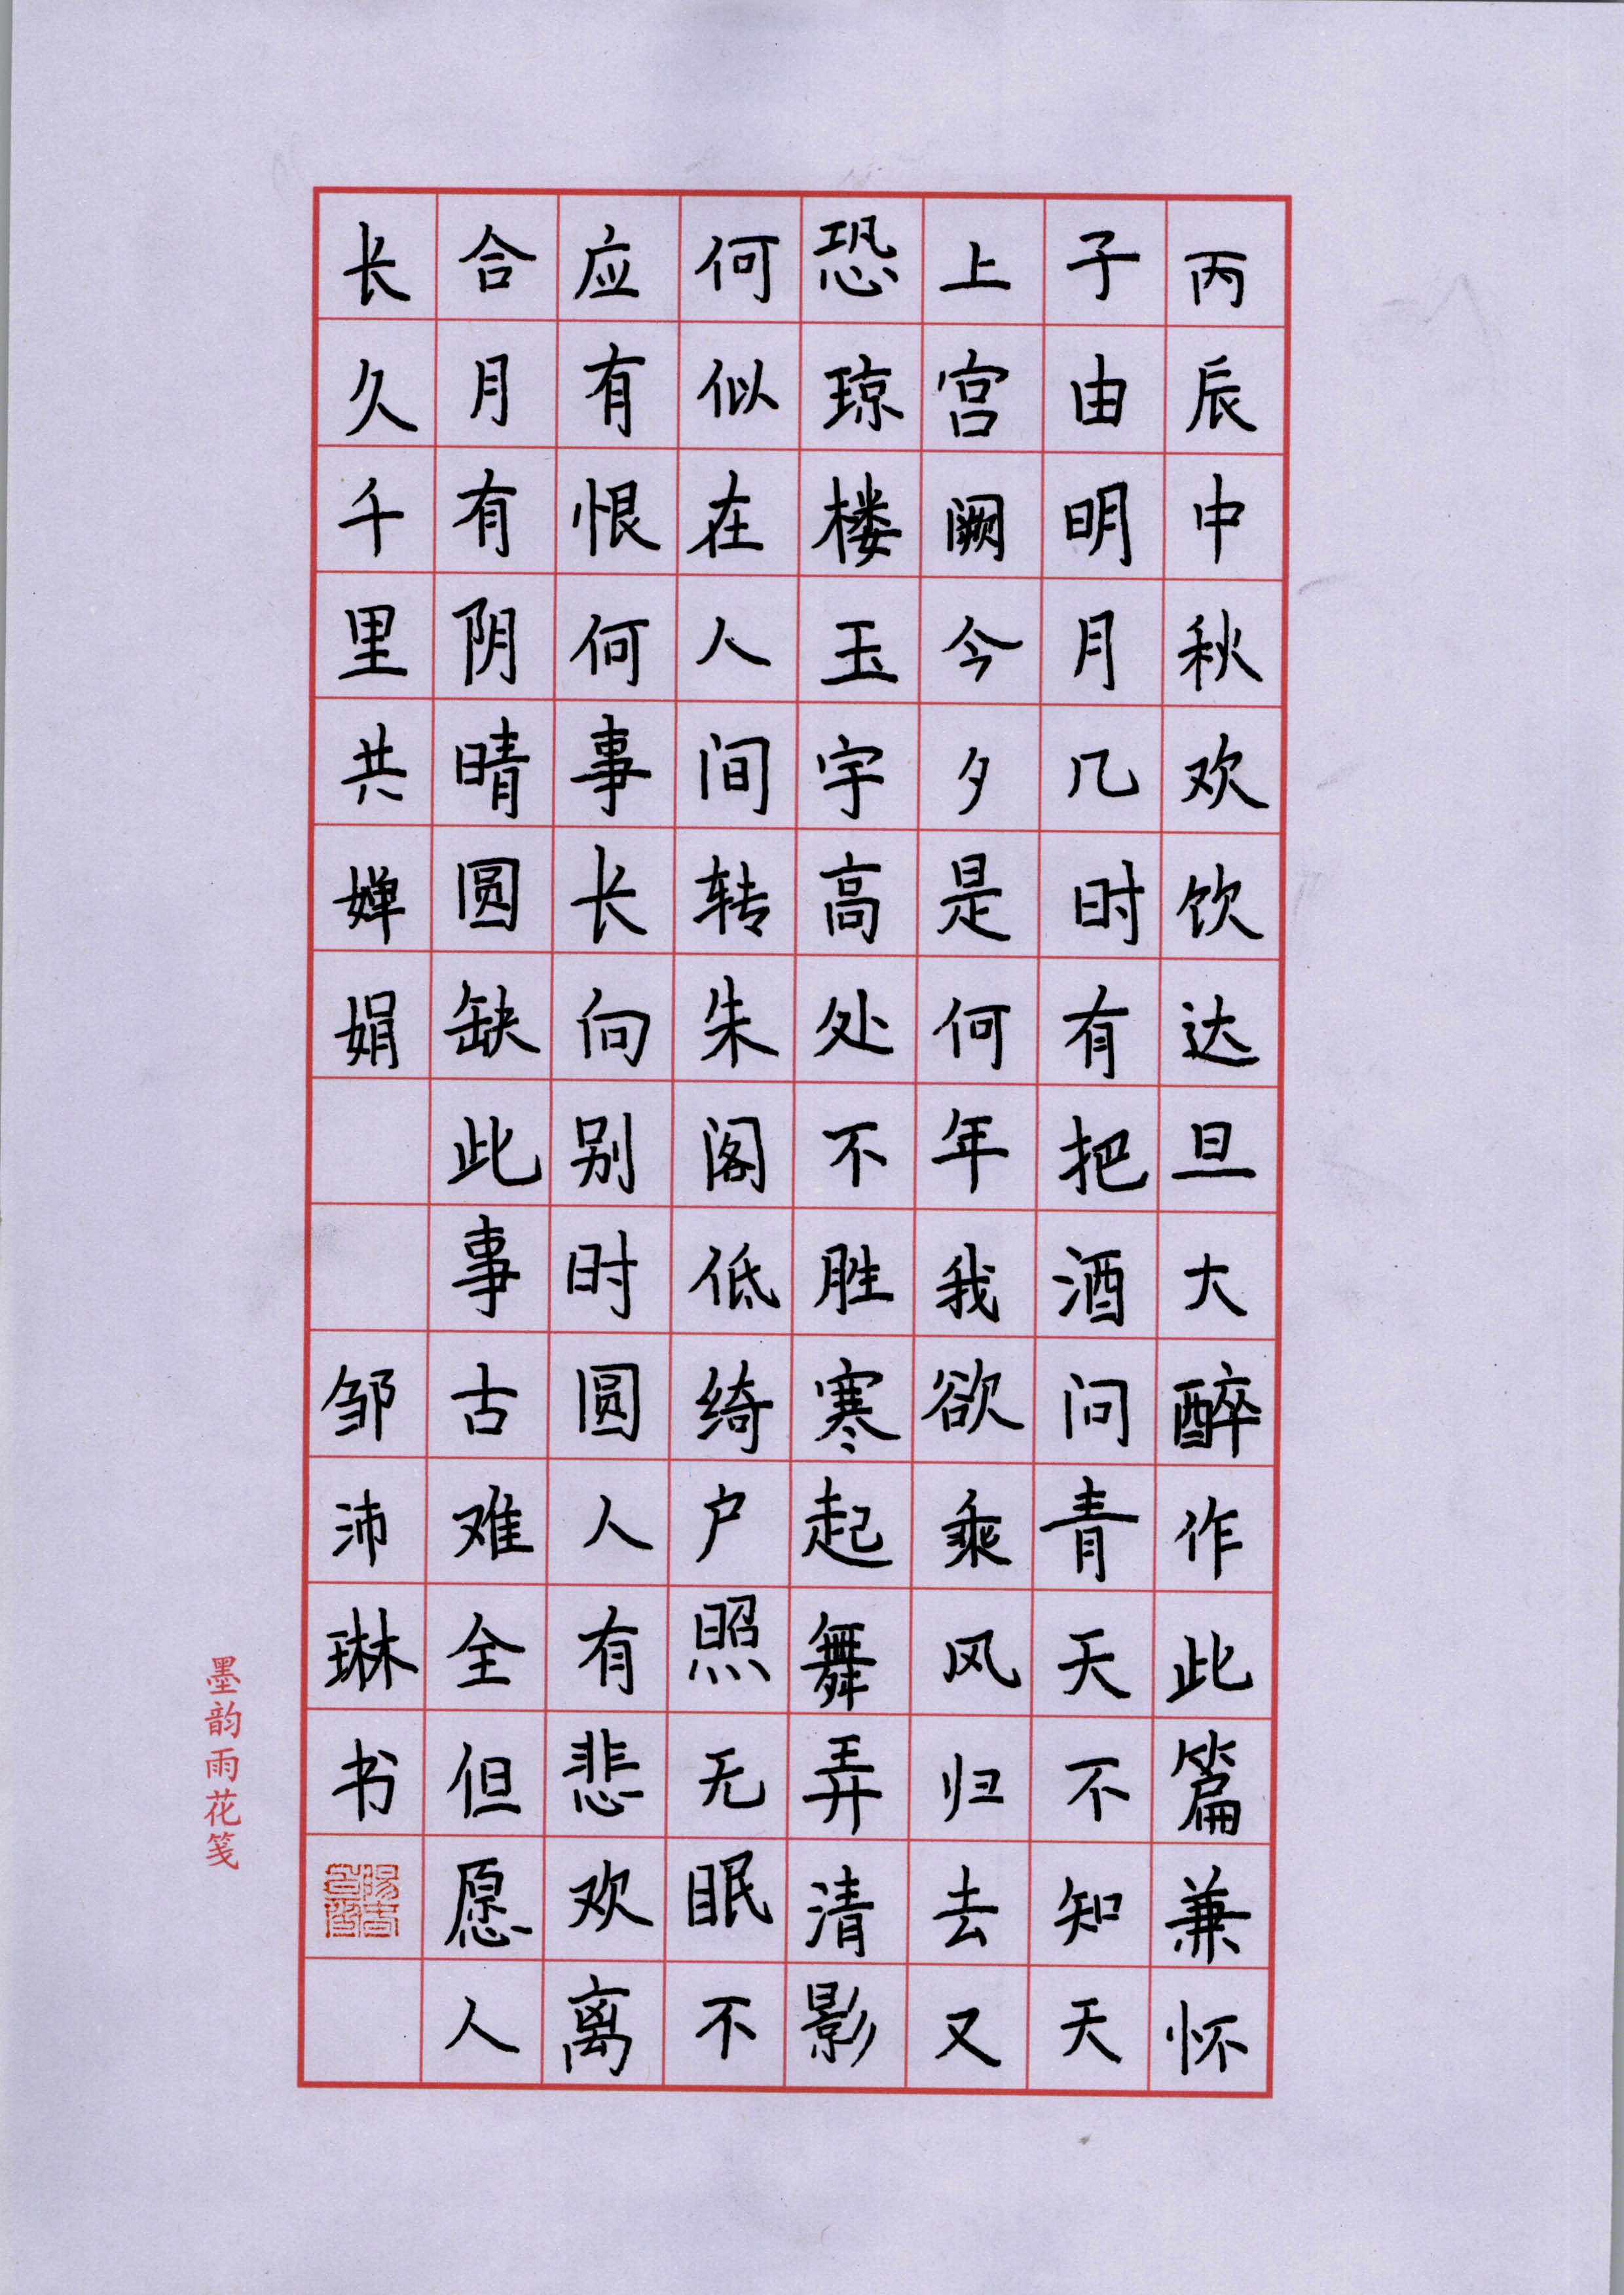 丙辰中秋欢饮达旦大醉作此篇兼怀
子由明月几时有把酒问青天不知天
上宫阙今夕是何年我欲乘风归去又
恐琼楼玉宇高处不胜寒起舞弄清影
何似在人间转朱阁低绮户照无眠不
应有恨何事长向别时圆人有悲欢离
合月有阴晴圆缺此事古难全但愿人
长久千里共婵娟
邹沛琳书
墨韵雨花笺